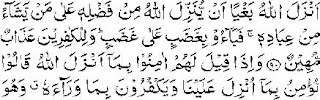 اَنْزَلَ اللهُ بَغْيًا اَنْ يُّنَزِّلَ اللهُ مِنْ فَضْلِهٖ عَلٰى مَنْ يَّشَآءُ
مِنْ عِبَادِهٖ ۚ فَبَآءُوْ بِغَضَبٍ عَلٰى غَضَبٍ ؕ وَلِلْكٰفِرِيْنَ عَذَابٌ
مُّهِيْنٌ ۝ وَاِذَا قِيْلَ لَهُمْ اٰمِنُوْا بِمَآ اَنْزَلَ اللهُ قَالُوْا
نُؤْمِنُ بِمَآ اُنْزِلَ عَلَيْنَا وَيَكْفُرُوْنَ بِمَا وَرَآءَهٗ ۚ وَهُوَ